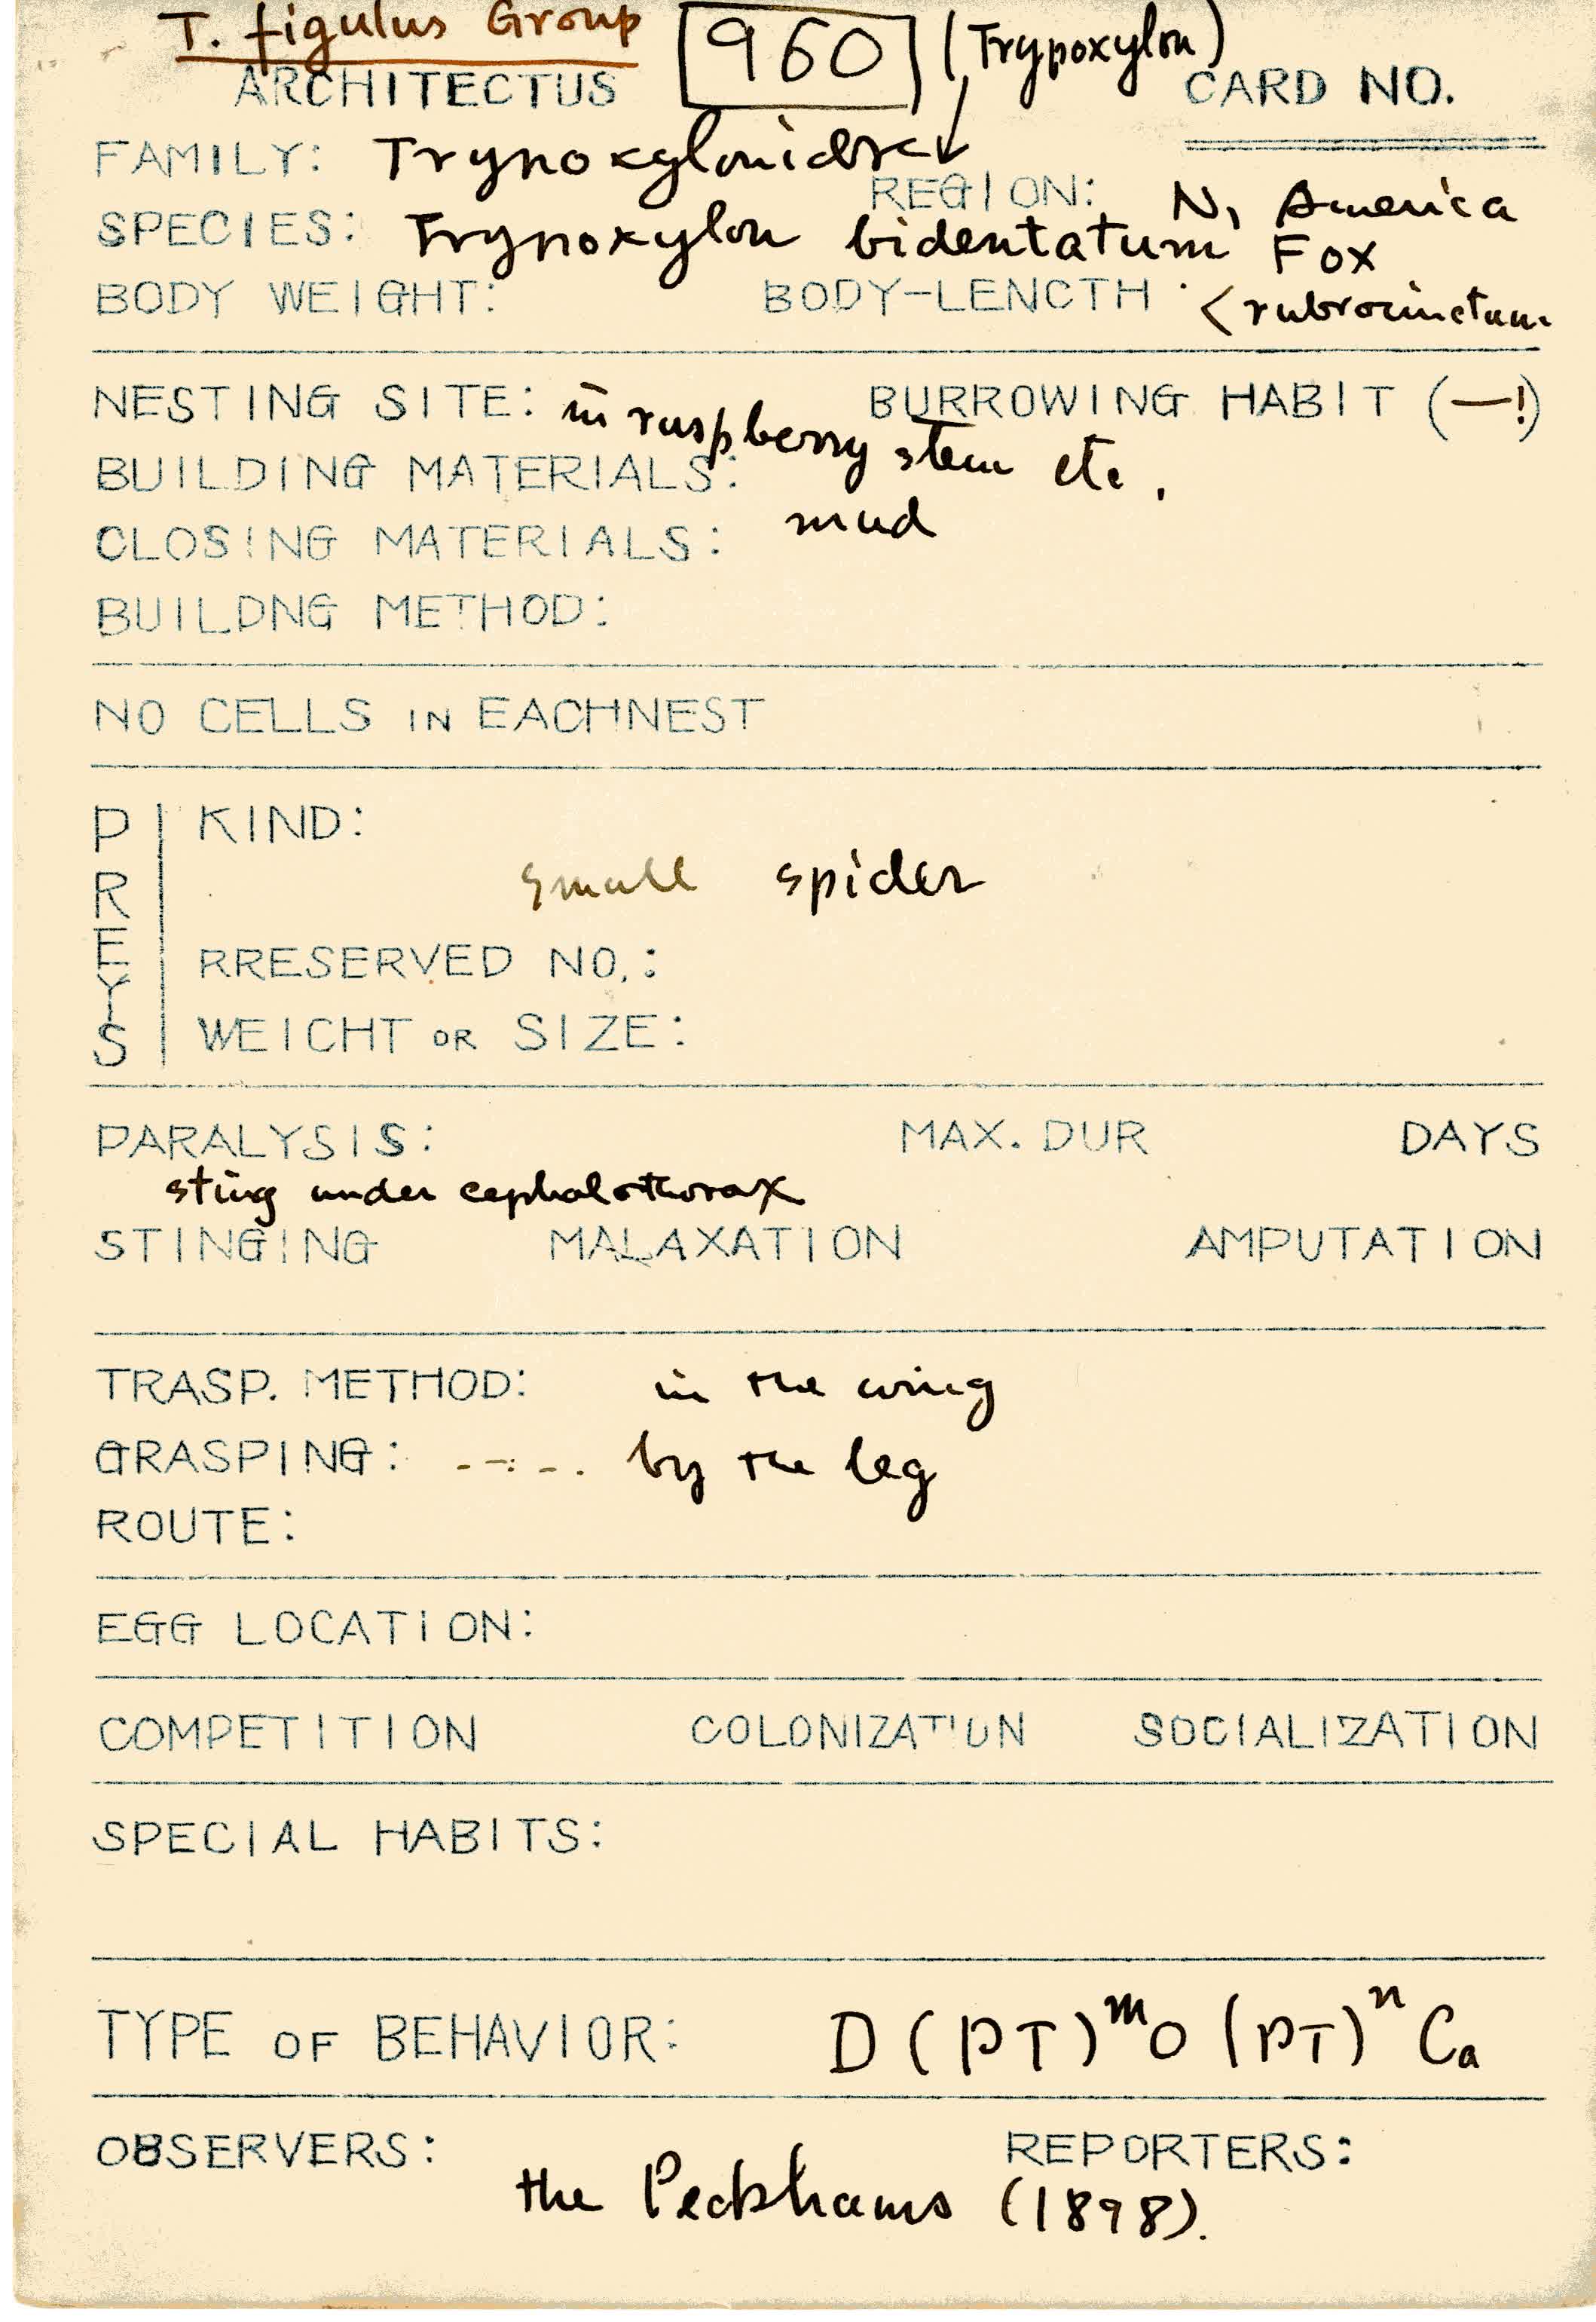 T. figulus Group 960 (Trypoxylon)
ARCHITECTUS CARD NO.
FAMILY: Trypoxylonidae
REGION: N. America
SPECIES: Trypoxylon bidentatum Fox
BODY WEIGHT: BODY-LENCTH < rubrocinctum
NESTING SITE: in raspberry stem etc. BURROWING HABIT (—!)
BUILDING MATERIALS:
CLOSING MATERIALS: mud
BUILDNG METHOD:
NO CELLS IN EACHNEST
PREYS
KIND:
small spider
RRESERVED NO.:
WEICHT OR SIZE:
PARALYSIS: MAX. DUR DAYS
sting under cephalothorax
STINGING MALAXATION AMPUTATION
TRASP. METHOD: in the wing
GRASPING: ----- by the leg
ROUTE:
EGG LOCATION:
COMPETITION COLONIZATION SOCIALIZATION
SPECIAL HABITS:
TYPE OF BEHAVIOR: D(PT)ᵐO(PT)ⁿCa
OBSERVERS: REPORTERS:
the Peckhams (1898).